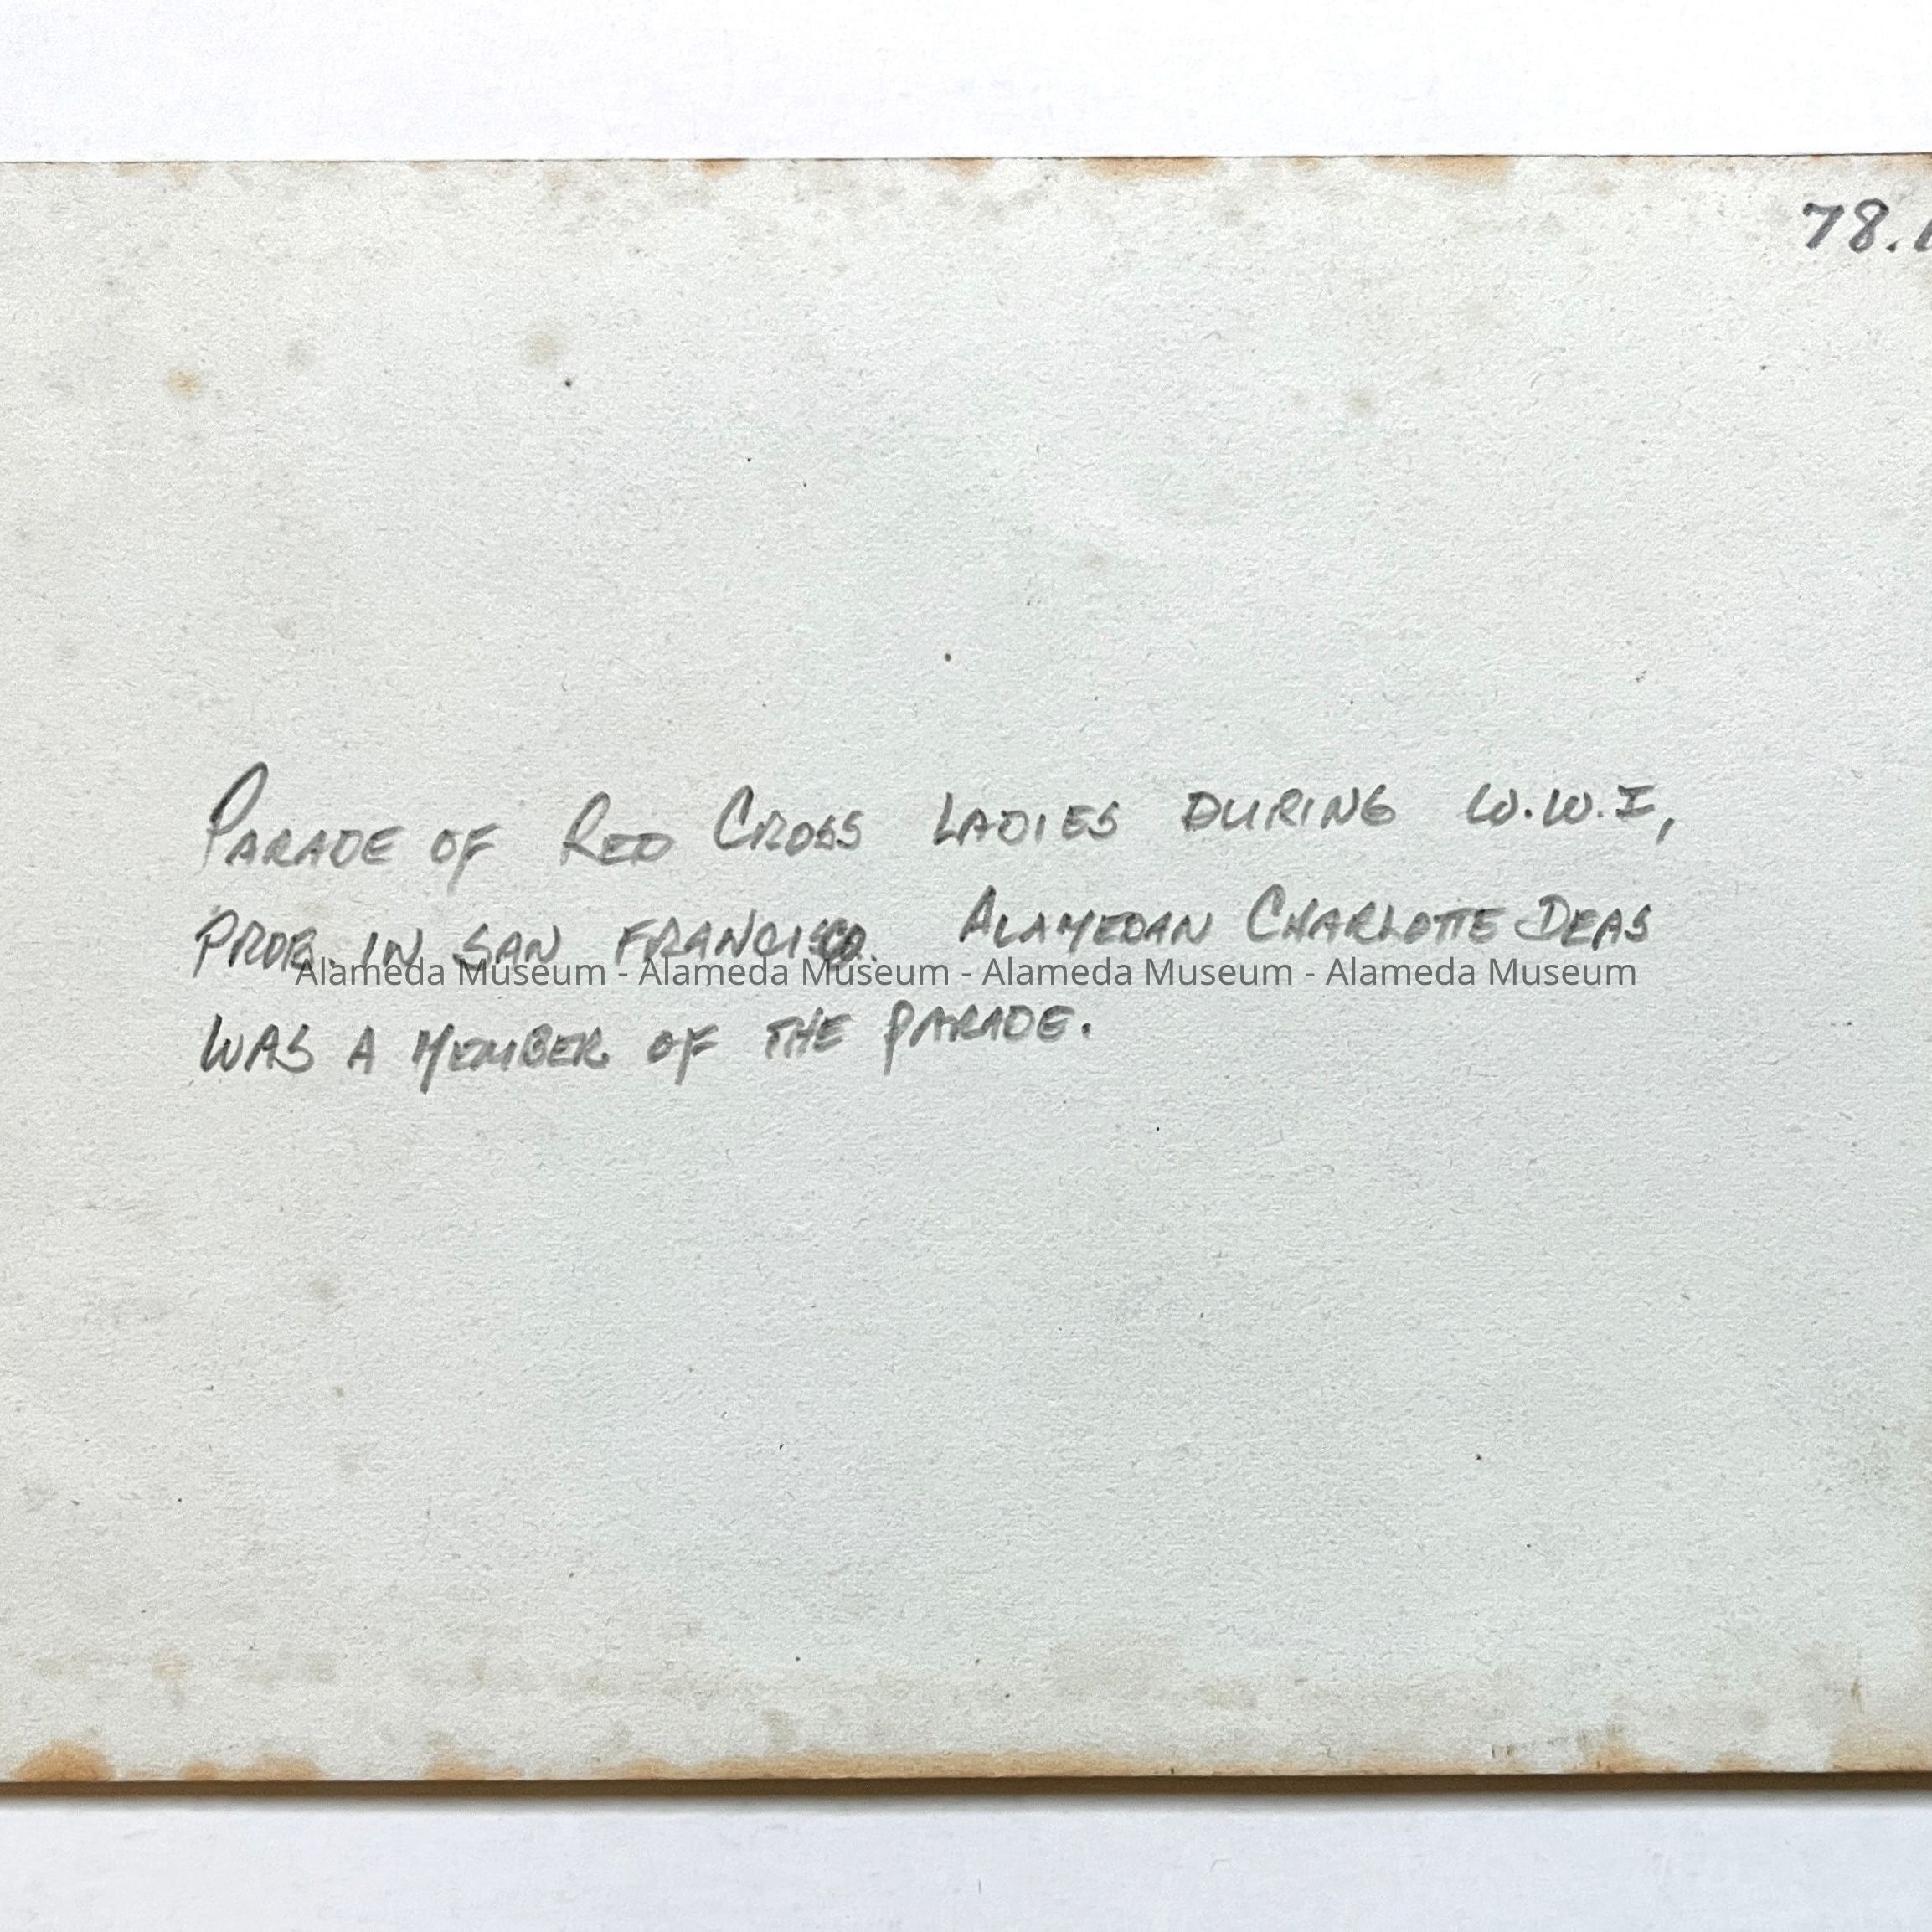 78.
PARADE OF RED CROSS LADIES DURING W.W.I,
PROB. IN SAN FRANCISCO. ALAMEDAN CHARLOTTE DEAS
Alameda Museum - Alameda Museum - Alameda Museum - Alameda Museum
WAS A MEMBER OF THE PARADE.